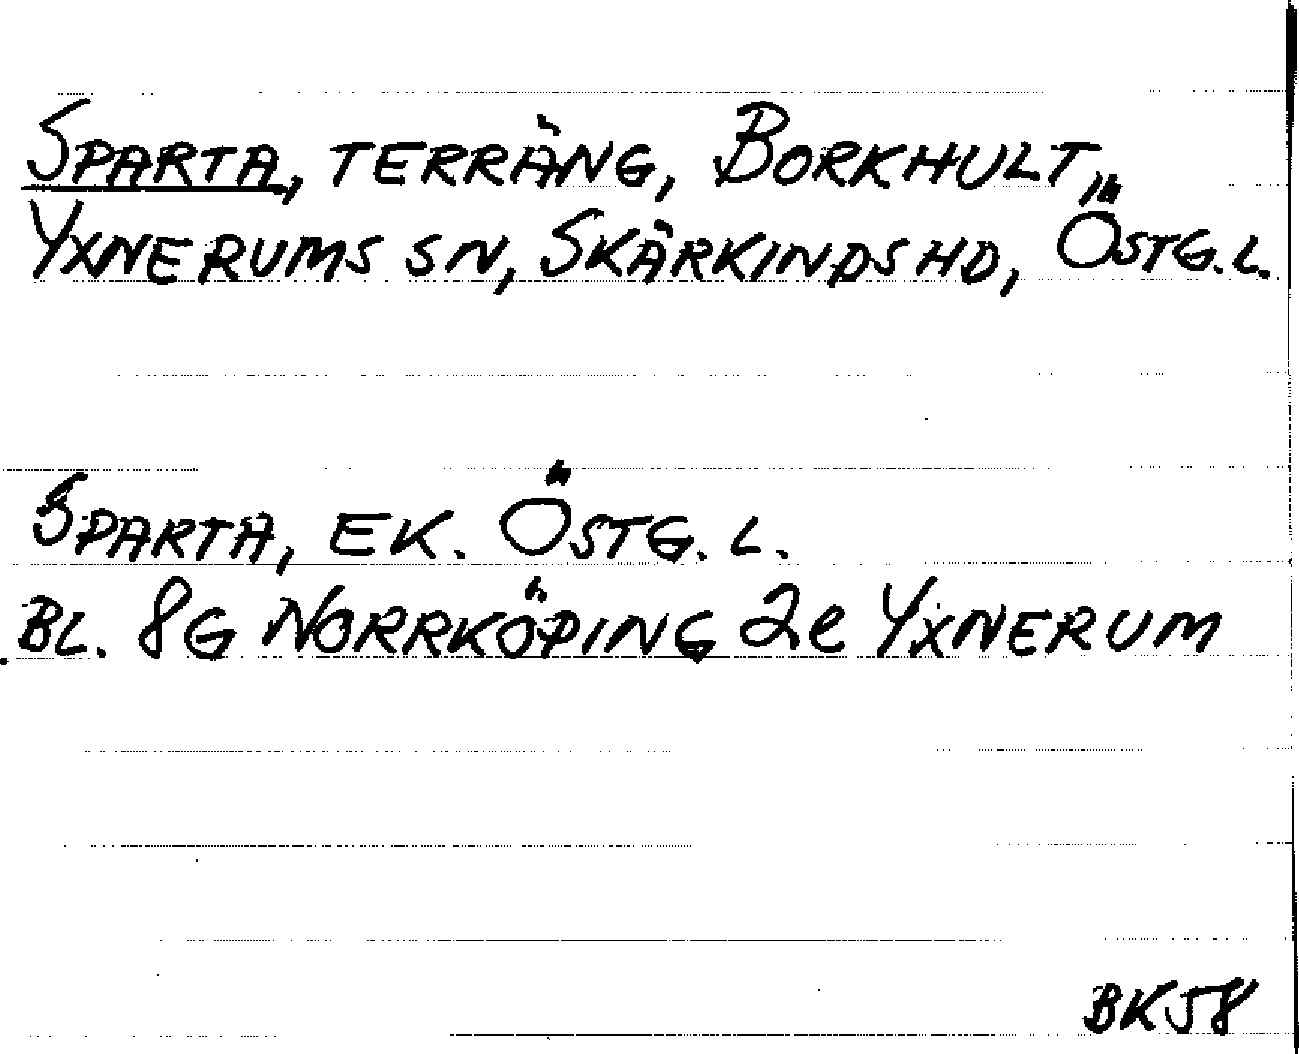 SPARTA, TERRÄNG, BORKHULT,
YXNERUMS SN, SKÄRKINDS HD, ÖSTG.L.
SPARTA, EK. ÖSTG. L.
BL. 8G NORRKÖPING 2e YXNERUM
BK58